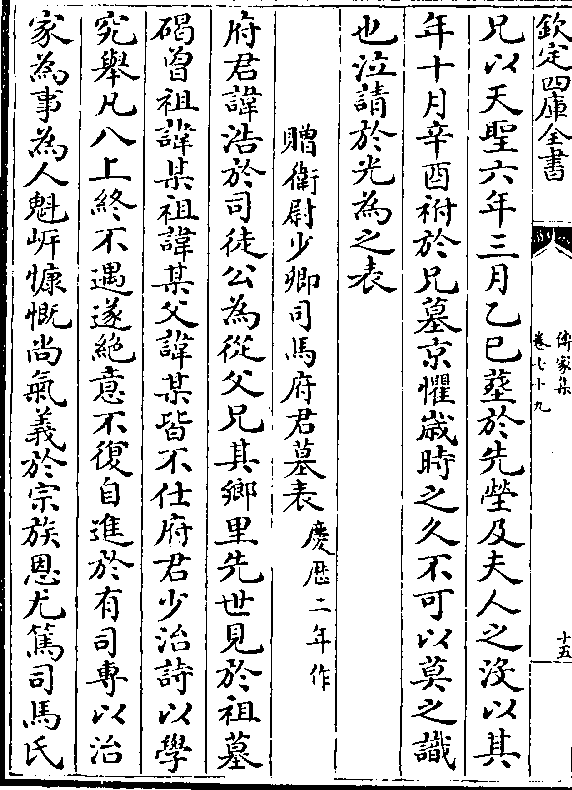 欽定四庫全書
傳家集
卷七十九
十五
兄以天聖六年三月乙巳葬於先塋及夫人之沒以其
年十月辛酉祔於兄墓京懼歲時之久不可以莫之識
也泣請於光為之表
贈衛尉少卿司馬府君墓表慶歴二年作
府君諱浩於司徒公為從父兄其鄉里先世見於祖墓
碣曾祖諱某祖諱某父諱某皆不仕府君少治詩以學
究舉凡八上終不遇遂絕意不復自進於有司專以治
家為事為人魁岸慷慨尚氣義於宗族恩尤篤司馬氏